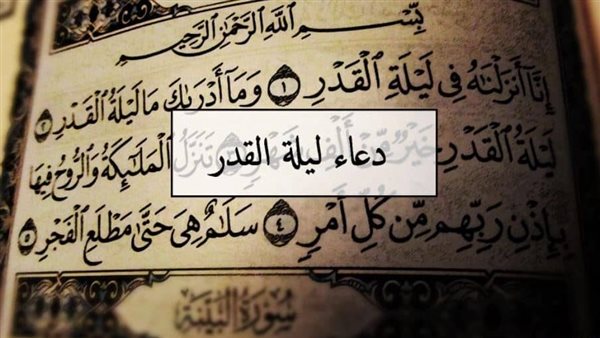 بِسْمِ اللَّهِ الرَّحْمَٰنِ الرَّحِيمِ
إِنَّا أَنزَلْنَاهُ فِي لَيْلَةِ الْقَدْرِ ١ وَمَا أَدْرَاكَ مَا لَيْلَةُ الْقَدْرِ ٢
لَيْلَةُ الْقَدْرِ خَيْرٌ مِّنْ أَلْفِ شَهْرٍ ٣ تَنَزَّلُ الْمَلَائِكَةُ وَالرُّوحُ فِيهَا
دعاء ليلة القدر
بِإِذْنِ رَبِّهِم مِّن كُلِّ أَمْرٍ ٤ سَلَامٌ هِيَ حَتَّىٰ مَطْلَعِ الْفَجْرِ ٥
سُورَةُ الْبَيِّنَة